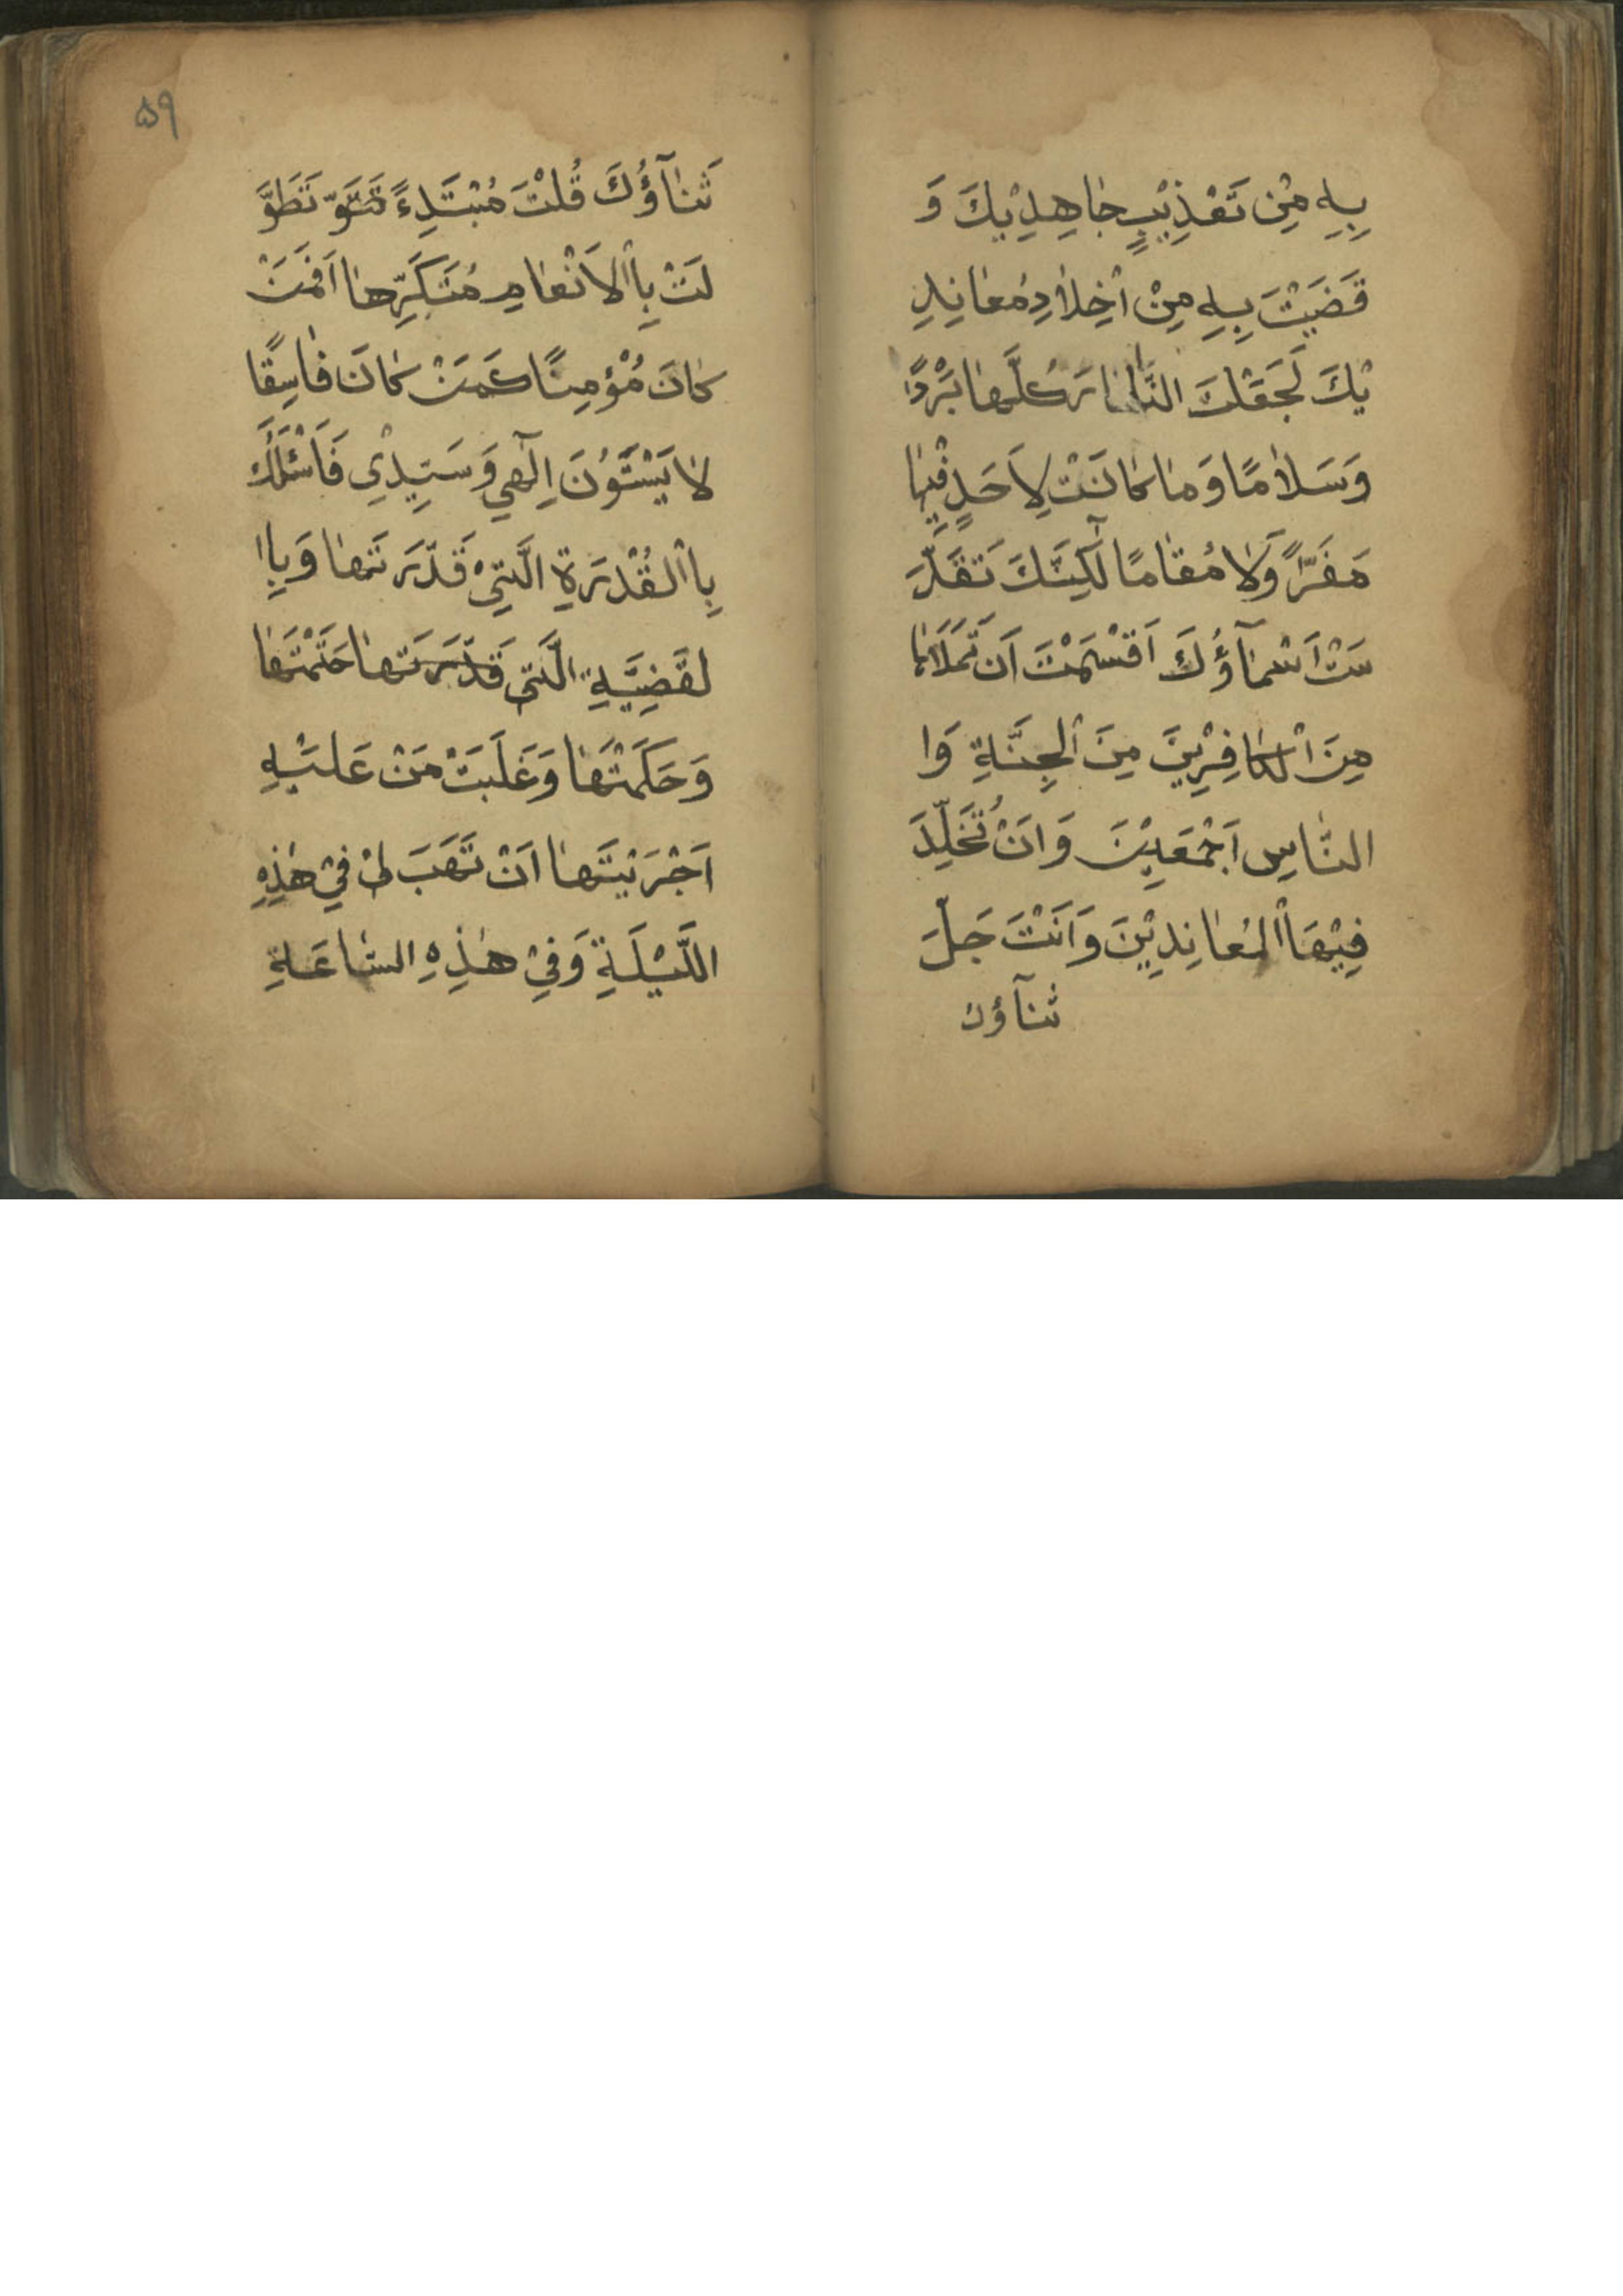 بِهِ مِنْ تَعْذِيْبِ جٰاهِدِيْكَ وَ
قَضَيْتَ بِهِ مِنْ اَخِلاٰدِ مُعٰانِدِ
يْكَ لَجَعَلْتَ النّٰارَ كُلَّهٰا بَرْدًا
وَسَلاٰمًا وَمٰا كٰانَتْ لِاَحَدٍ فِيْهٰا
مَفَرًّا وَلاٰ مُقٰامًا لٰكِنَّكَ تَقَدَّ
سَتْ اَسْمٰآؤُكَ اَقْسَمْتَ اَنْ تَمْلَاَهٰا
مِنَ الْكٰافِرِيْنَ مِنَ الْجِنَّةِ وَا
النّٰاسِ اَجْمَعِيْنَ وَاَنْ تُخَلِّدَ
فِيْهَا الْمُعٰانِدِيْنَ وَاَنْتَ جَلَّ
ثنآؤك
۵۹
ثَنٰآؤُكَ قُلْتَ مُبْتَدِءً تَطَوَّ
لَتْ بِاْالاَنْعٰامِ مُتَكَرِّهٰا اَفَمَنْ
كٰانَ مُؤْمِنًا كَمَنْ كٰانَ فٰاسِقًا
لاٰ يَسْتَوُنَ اِلٰهِي وَسَيِّدِي فَاَسْئَلُكَ
بِاْالْقُدْرَةِ الَّتِيْ قَدَّرَتَهٰا وَبِاا
لْقَضِيَّةِ الَّتِي قَدَّرَتَهٰا حَتَمْتَهٰا
وَحَكَمْتَهٰا وَغَلَبْتَ مَنْ عَلَيْهِ
اَجْرَيْتَهٰا اَنْ تَهَبَ لِيْ فِيْ هٰذِهِ
اللَّيْلَةِ وَفِيْ هٰذِهِ السّٰاعَةِ